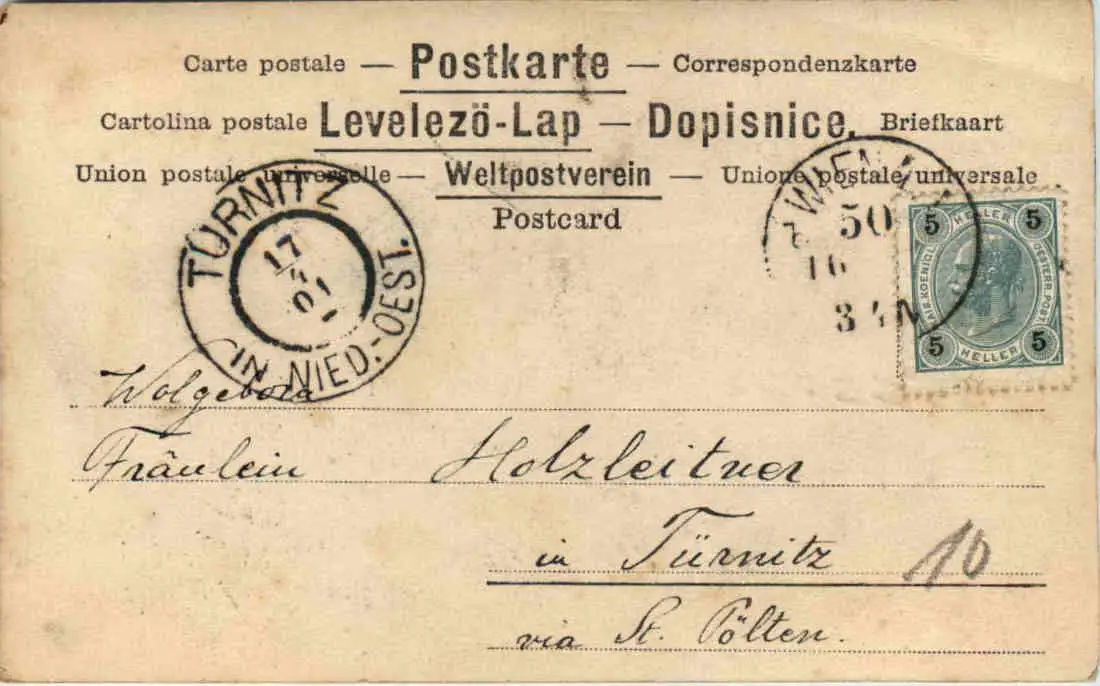 Carte postale — Postkarte — Correspondenzkarte
Cartolina postale Levelezö-Lap — Dopisnice. Briefkaart
Union postale universelle — Weltpostverein — Unione postale universale
Postcard
TÜRNITZ
17
01
IN NIED.-OEST.
WIEN
50
16
3
5 HELLER 5
KAIS. KOENIGL. OESTERR. POST.
5 HELLER 5
Wolgeborn
Fräulein Holzleitner
in Türnitz
10
via St. Pölten.